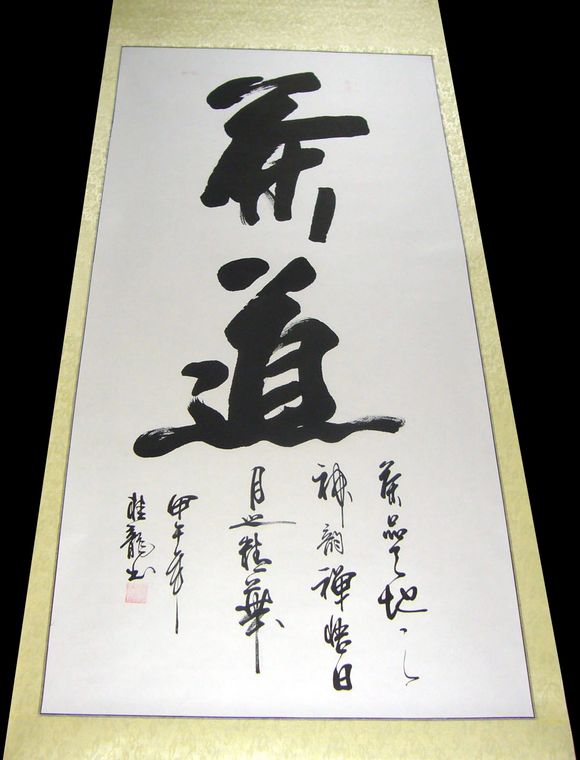 茶道
茶品天地之
神韵禅悟日
月之精華
甲午年
桂龍书